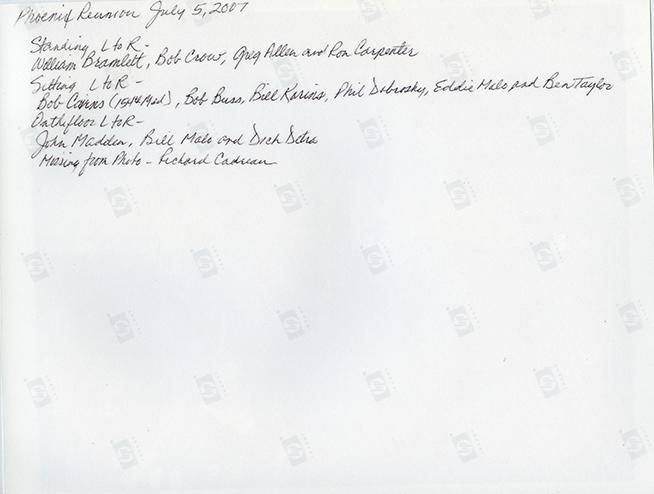 Phoenix Reunion July 5, 2007
Standing, L to R -
William Bramlett, Bob Crow, Greg Allen and Ron Carpenter
Sitting L to R -
Bob Cairns (15th Med), Bob Buss, Bill Karins, Phil Dobrosky, Eddie Malo and Ben Taylor
On the floor L to R -
John Madden, Bill Malo and Dick Detra
Missing from Photo - Richard Cadieau